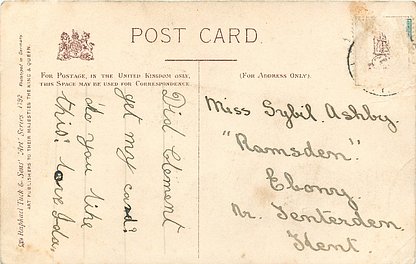 POST CARD.
FOR POSTAGE, IN THE UNITED KINGDOM ONLY,
THIS SPACE MAY BE USED FOR CORRESPONDENCE.
(FOR ADDRESS ONLY).
Did Clement
get my card?
do you like
this? love Ida.
Miss Sybil Ashby.
"Ramsden".
Ebony.
Nr. Tenterden.
Kent.
Raphael Tuck & Sons' "Art" Series
ART PUBLISHERS TO THEIR MAJESTIES THE KING & QUEEN.